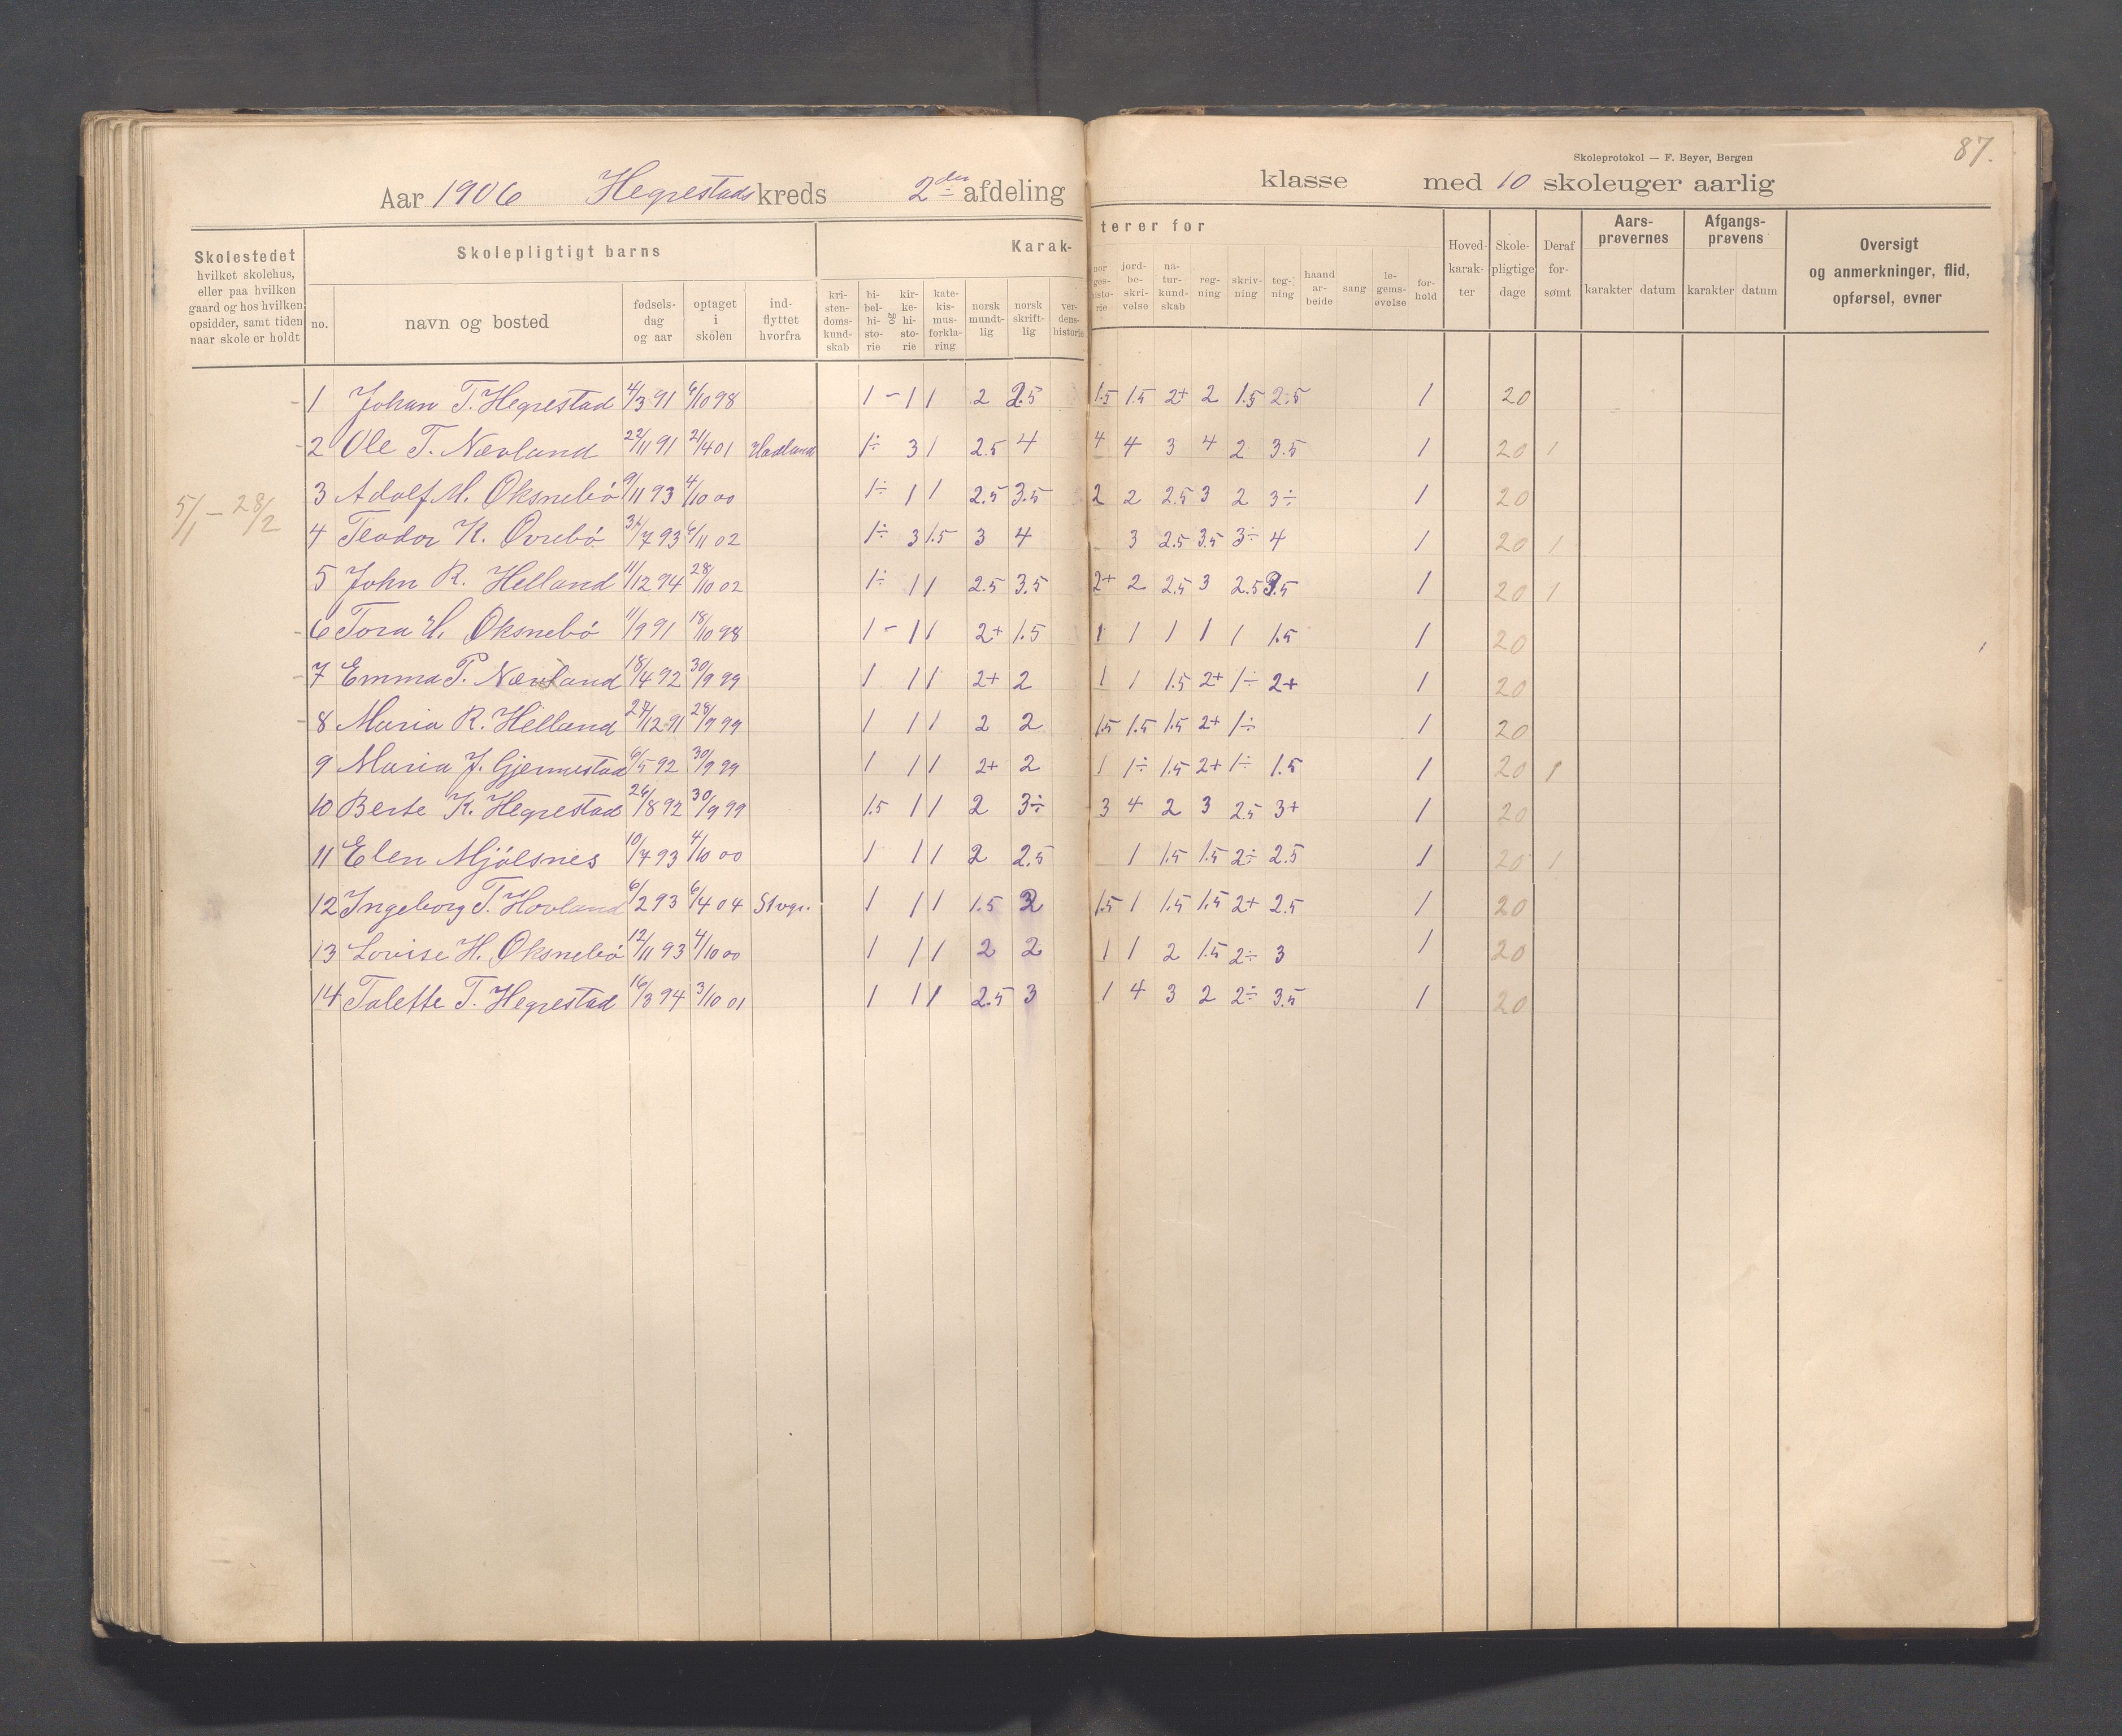 87.
Skoleprotokol — F. Beyer, Bergen
Aar 1906 Hegrestads kreds 2den afdeling klasse med 10 skoleuger aarlig
Skolestedet hvilket skolehus, eller paa hvilken gaard og hos hvilken opsidder, samt tiden naar skole er holdt
Skolepligtigt barns
no. navn og bosted fødsels-dag og aar optaget i skolen ind-flyttet hvorfra
Karak-terer for
kri-sten-doms-kund-skab bi-bel-hi-sto-rie og kir-ke-hi-sto-rie kate-kis-mus-forkla-ring norsk mundt-lig norsk skrift-lig ver-dens-historie nor ges-histo-rie jord-be-skri-velse na-tur-kund-skab reg-ning skriv-ning teg-ning haand ar-beide sang le-gems-øvelse for-hold
Hoved-karak-ter Skole-pligtige dage Deraf for-sømt
Aars-prøvernes karakter datum Afgangs-prøvens karakter datum
Oversigt og anmerkninger, flid, opførsel, evner
1 Johan T. Hegrestad 4/3 91 6/10 98 1 - 1 1 2 2.5 1.5 1.5 2+ 2 1.5 2.5 1 20
2 Ole T. Nævland 22/11 91 21/4 01 Hadland 1÷ 3 1 2.5 4 4 4 3 4 2 3.5 1 20 1
5/1 - 28/2
3 Adolf M. Øksnebø 9/11 93 4/10 00 1÷ 1 1 2.5 3.5 2 2 2.5 3 2 3÷ 1 20
4 Teodor K. Ovrebø 31/7 93 6/11 02 1÷ 3 1.5 3 4 3 2.5 3.5 3÷ 4 1 20 1
5 John R. Helland 11/12 94 28/10 02 1÷ 1 1 2.5 3.5 2+ 2 2.5 3 2.5 3.5 1 20 1
6 Tora H. Øksnebø 11/9 91 18/10 98 1 - 1 1 2+ 1.5 1 1 1 1 1 1.5 1 20
7 Emma P. Nævland 18/4 92 30/9 99 1 1 1 2+ 2 1 1 1.5 2+ 1÷ 2+ 1 20
8 Maria R. Helland 27/12 91 28/9 99 1 1 1 2 2 1.5 1.5 1.5 2+ 1÷ 1 20
9 Maria J. Gjermestad 6/5 92 30/9 99 1 1 1 2+ 2 1 1÷ 1.5 2+ 1÷ 1.5 1 20 1
10 Berte K. Hegrestad 26/8 92 30/9 99 1.5 1 1 2 3÷ 3 4 2 3 2.5 3+ 1 20
11 Elen Mjølsnes 10/7 93 4/10 00 1 1 1 2 2.5 1 1.5 1.5 2÷ 2.5 1 20 1
12 Ingeborg T. Hovland 6/2 93 6/4 04 Stvgr. 1 1 1 1.5 2 1.5 1 1.5 1.5 2+ 2.5 1 20
13 Lovise H. Øksnebø 12/11 93 4/10 00 1 1 1 2 2 1 1 2 1.5 2÷ 3 1 20
14 Talette T. Hegrestad 16/3 94 3/10 01 1 1 1 2.5 3 1 4 3 2 2÷ 3.5 1 20